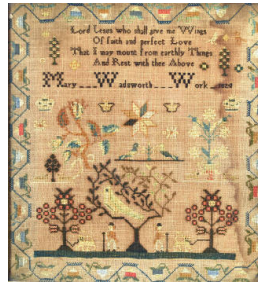 Lord Jesus who shall give me Wings
Of faith and perfect Love
That I may mount from earthly Things
And Rest with thee Above
Mary Wadsworth Work